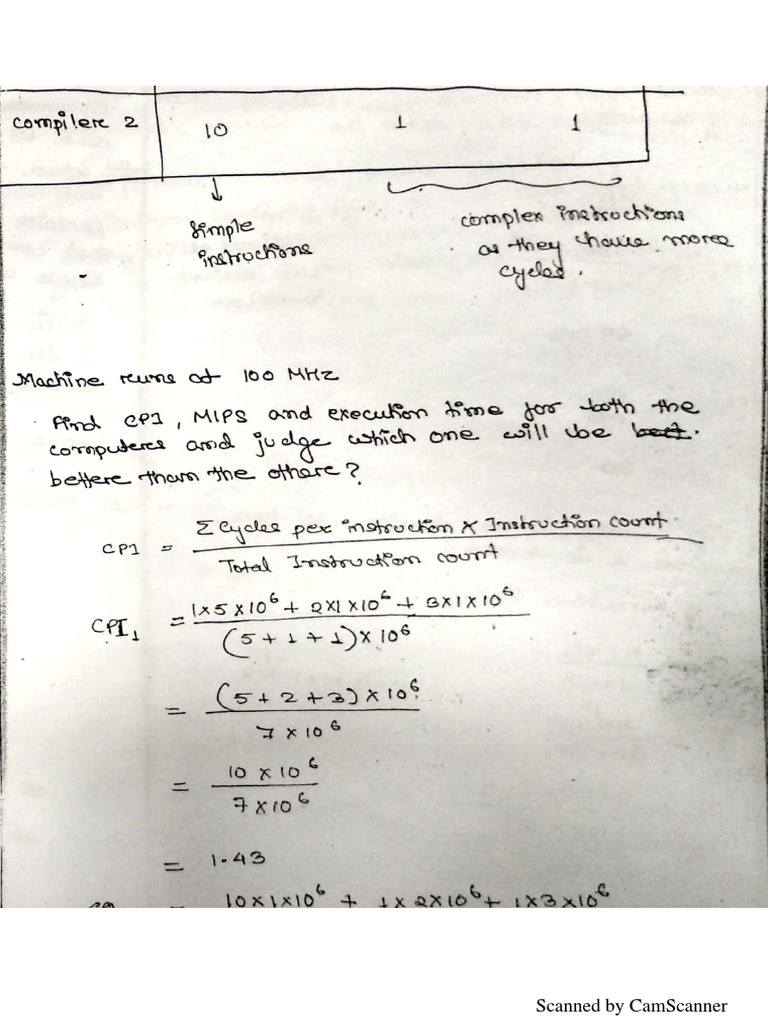 Compilere 2 10 1 1
↓
simple instructions
complex instructions as they have more cycles.
Machine runs at 100 MHz
Find CPI, MIPS and execution time for both the
computeres and judge which one will be best.
bettere than the othere?
CPI = Σ Cycles per instruction × Instruction count / Total Instruction count
CPI₁ = 1×5×10⁶ + 2×1×10⁶ + 3×1×10⁶ / (5+1+1)×10⁶
= (5+2+3)×10⁶ / 7×10⁶
= 10×10⁶ / 7×10⁶
= 1.43
= 10×1×10⁶ + 1×2×10⁶ + 1×3×10⁶
Scanned by CamScanner